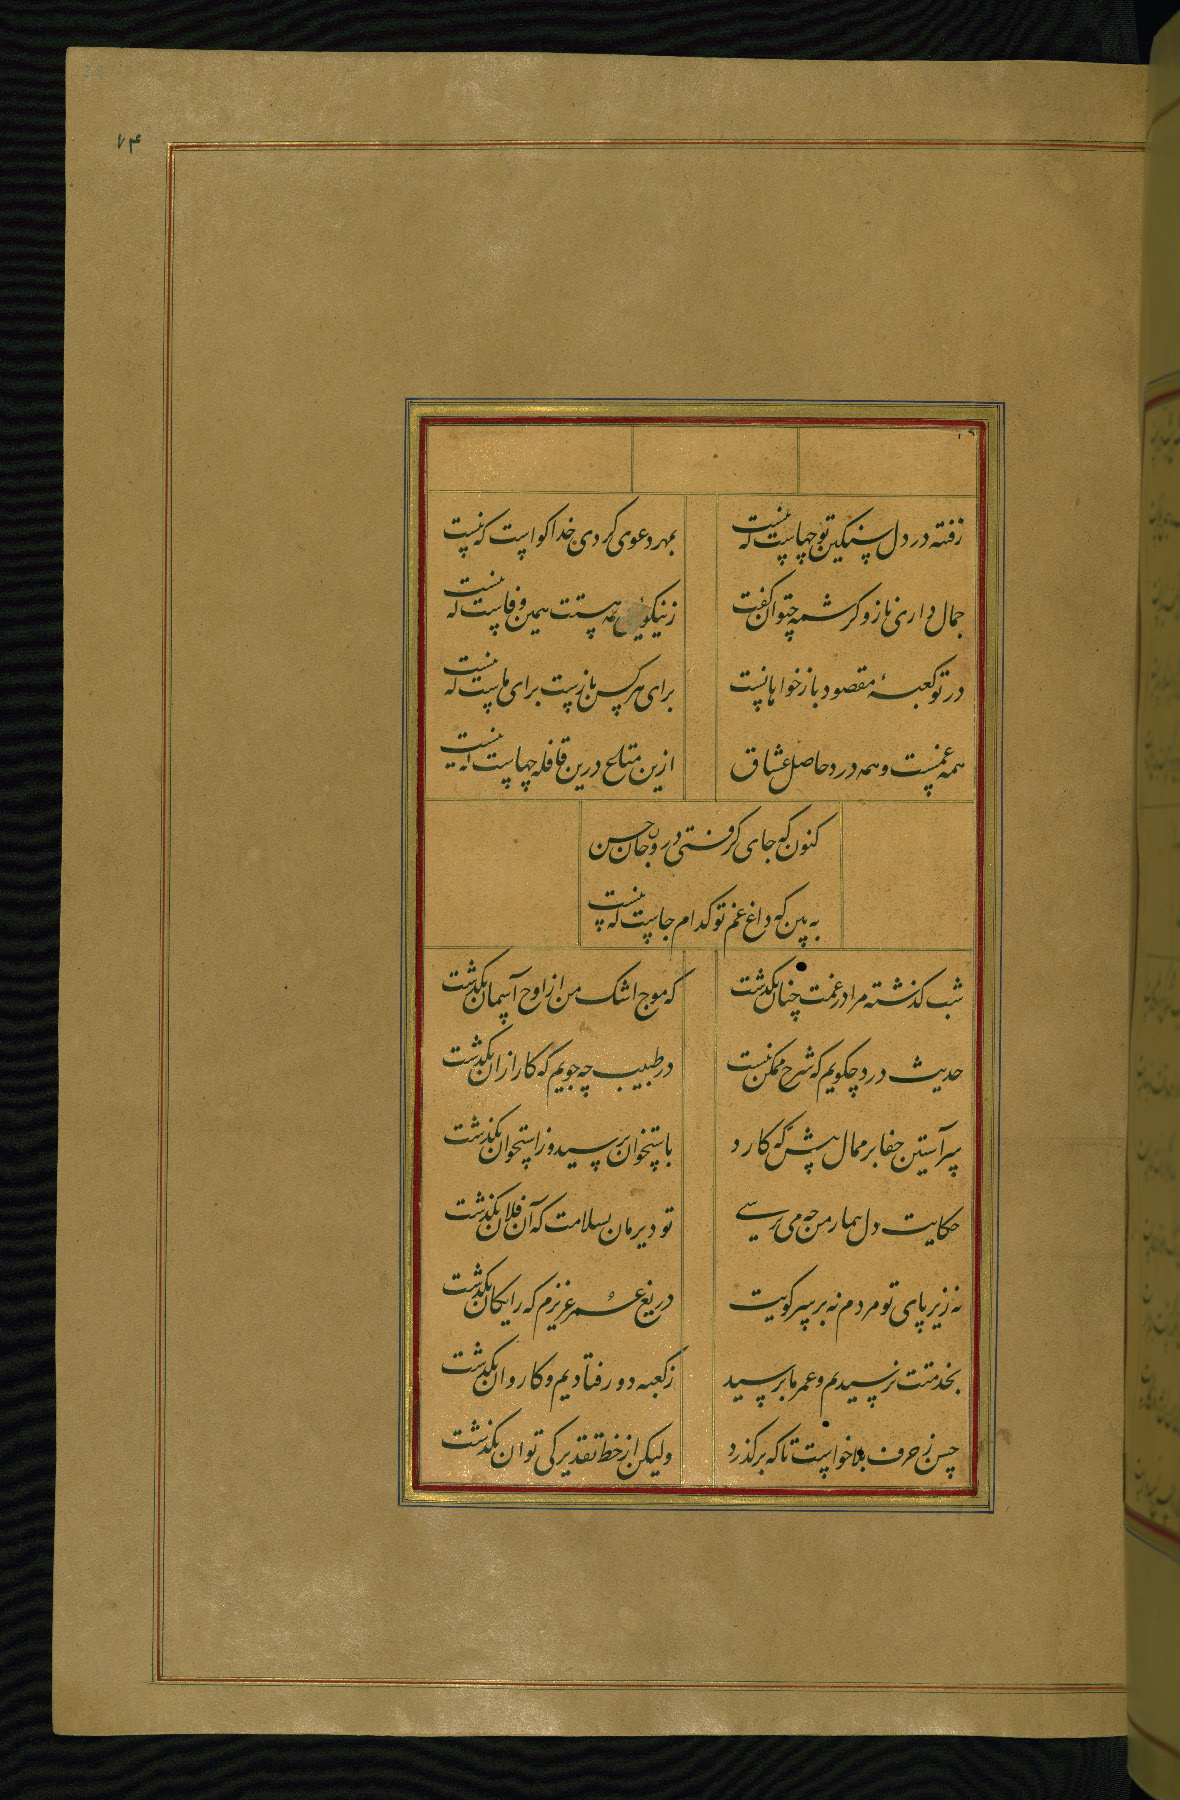 ۷۴
زفته در دل سنکین تو جهاست که نیست
بمهر دعوی کردی خدا کواست که نیست
جمال داری و ناز و کرشمه چتوان کفت
همه هستت همین وفاست که نیست
در تو کعبهٔ مقصود باز خواهانست
برای هر کس بازست برای ماست که نیست
همه غمست و همه درد حاصل عشاق
ازین متاع درین قافله جهاست که نیست
کنون که جای کرفتی درون جان حسن
به بین که داغ غم تو کدام جاست که نیست
شب کذشته مرا در غمت چنان بکذشت
که موج اشک من از اوج آسمان بکذشت
حدیث درد چکویم که شرح ممکن نیست
در طبیب چه جویم که کار ازان بکذشت
سر آستین جفا بر ممال پیش که کارد
باستخوان برسید و ز استخوان بکذشت
حکایت دل بیمار من چه می پرسی
تو دیر مان بسلامت که آن فلان بکذشت
نه زیر پای تو مردم نه بر سر کویت
دریغ عمر عزیزم که رایکان بکذشت
بخدمتت نرسیدیم و عمر ما برسید
ز کعبه دور فتادیم و کاروان بکذشت
حسن ز حرف بلا خواست تا که بر کذرد
ولیکن از خط تقدیر کی توان بکذشت